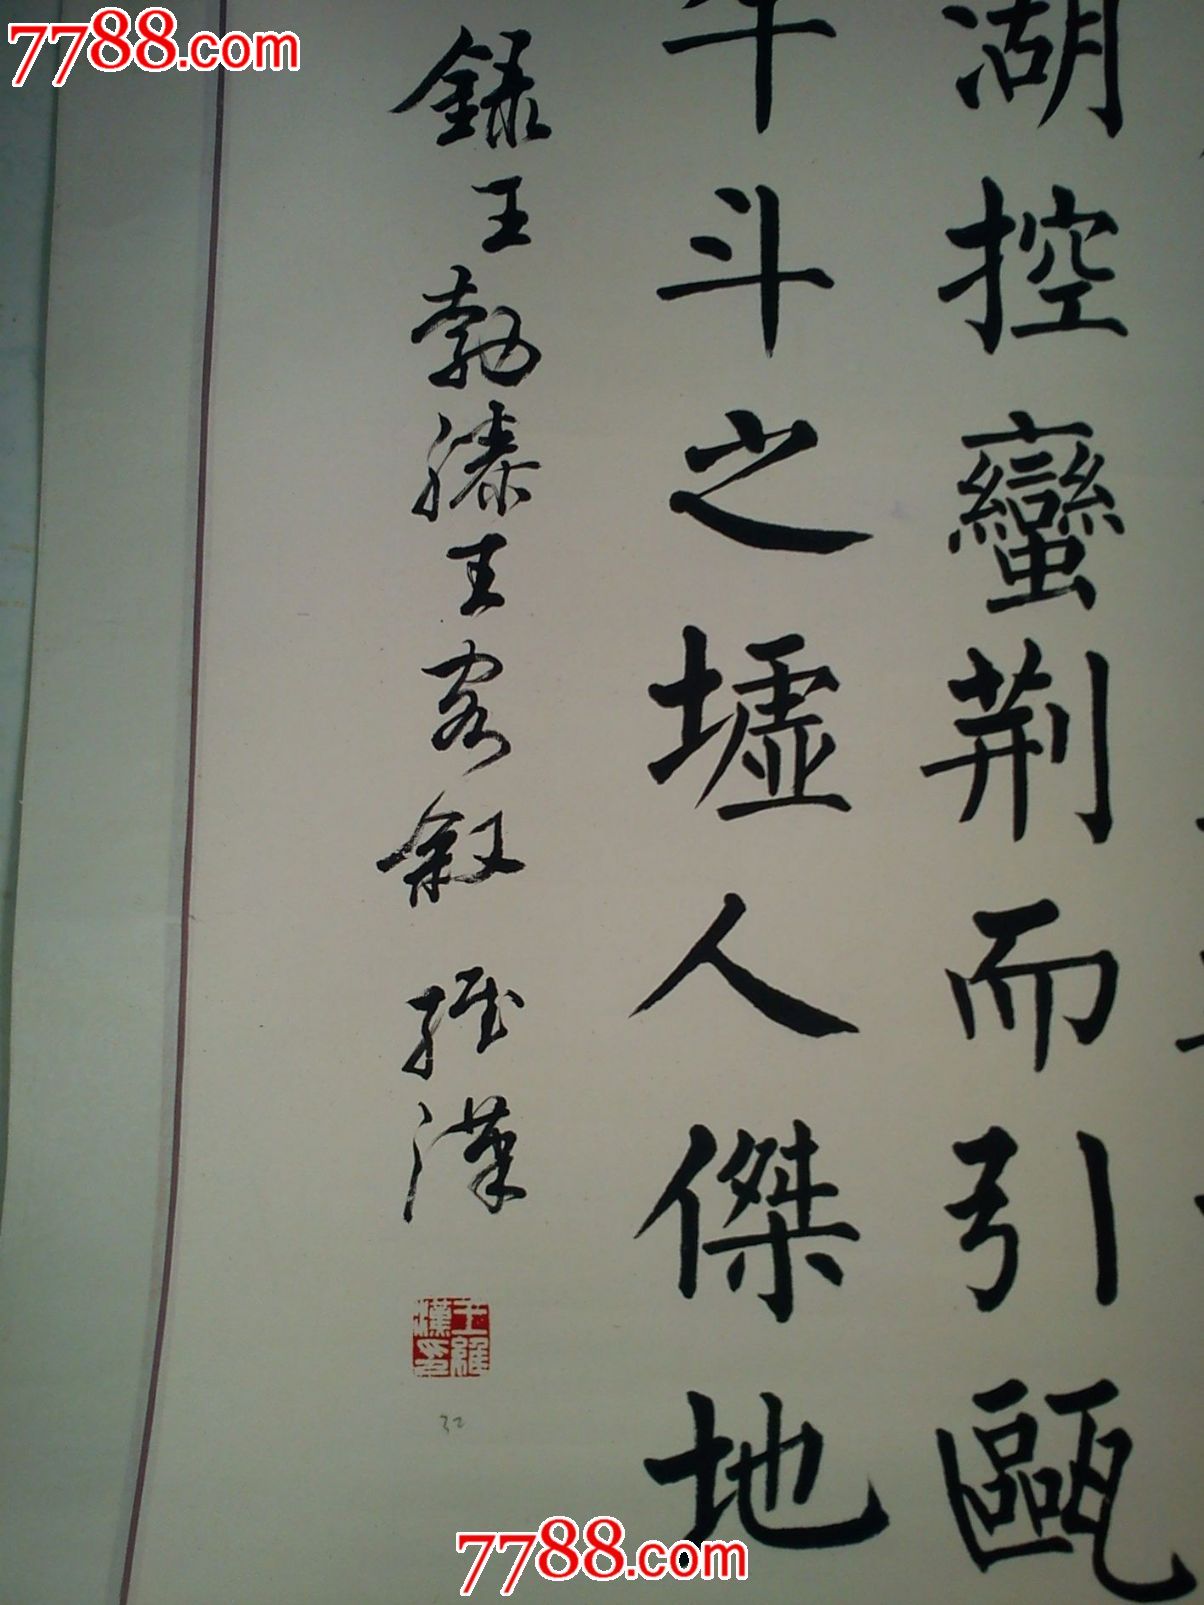 7788.com
湖控蠻荊而引甌
牛斗之墟人傑地
録王勃滕王閣叙 維漢
王維漢印
32
7788.com